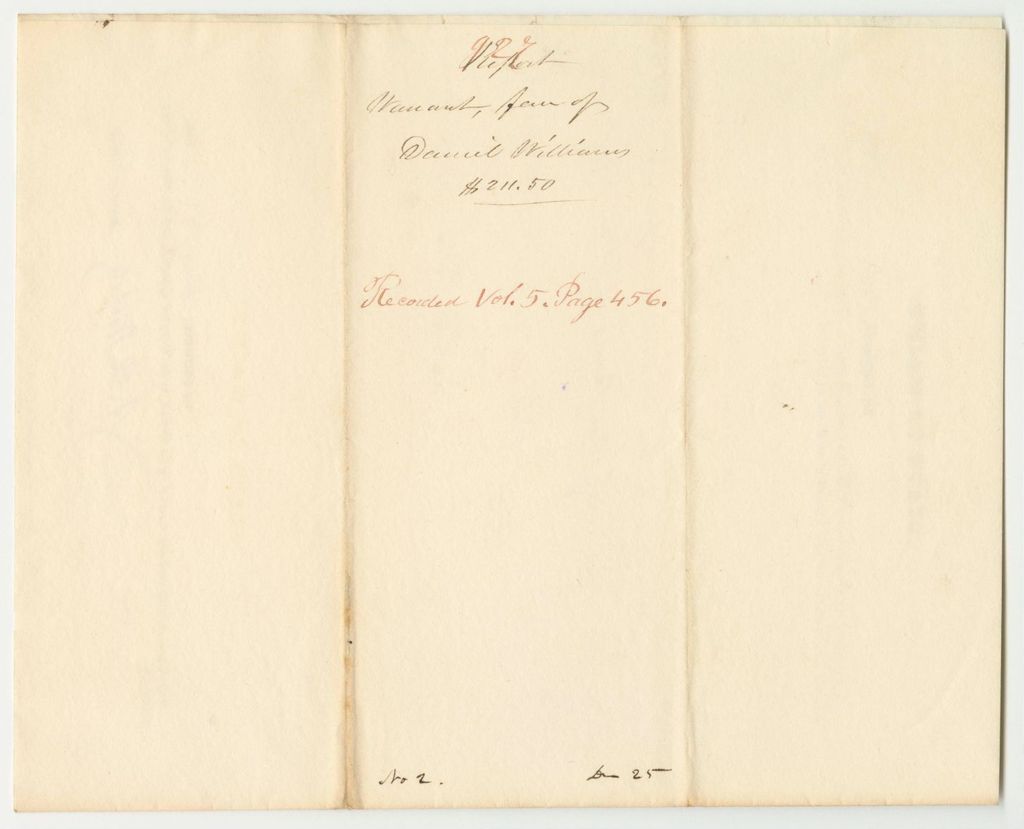 Report
Warrant, favr of
Daniel Williams
$211.50
Recorded Vol. 5. Page 456.
No 2.
25